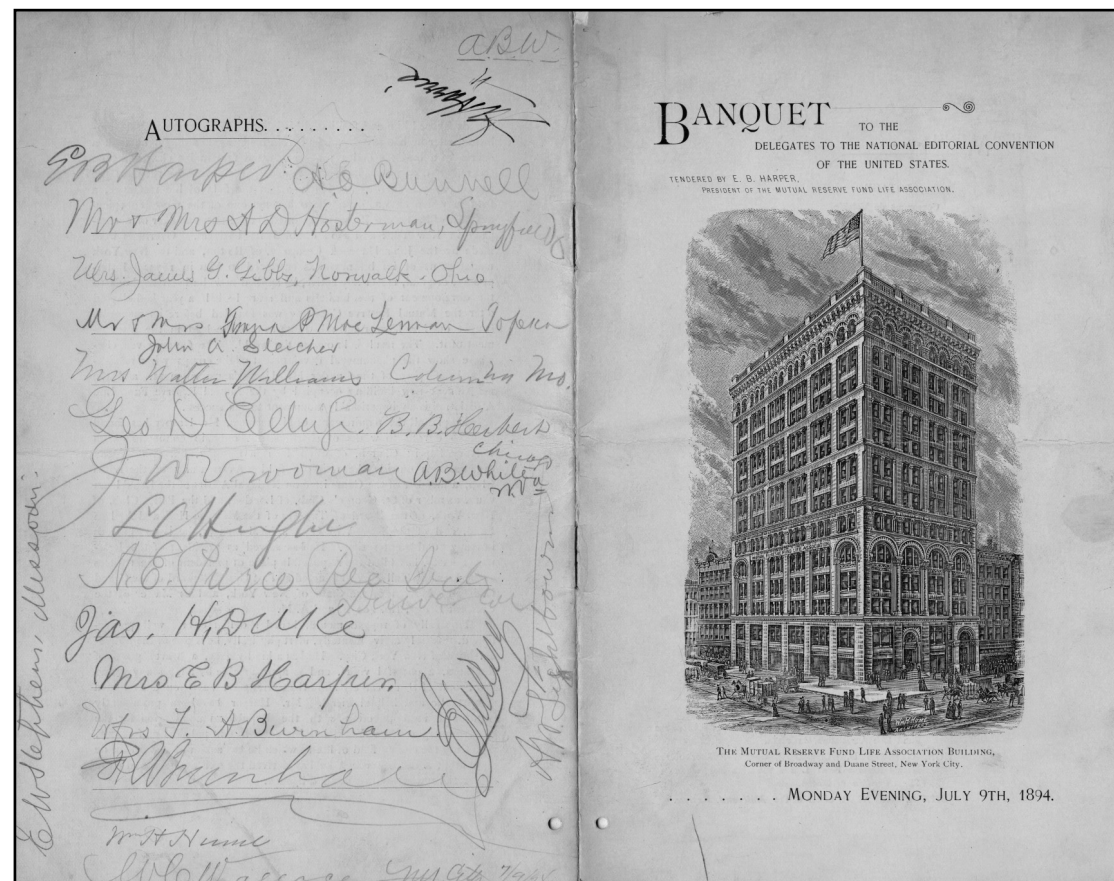 A.B.W.
AUTOGRAPHS. . . . . . . . .
E B Harper. A. O. Bunnell
Mr & Mrs A D Hosterman, Springfield O
Mrs. James G. Gibbs, Norwalk Ohio
Mr & Mrs Frank P Mac Lennan Topeka
John A. Sleicher
Mrs Walter Williams Columbia Mo.
Geo D
B. B. Herbert
Chicago
J W Vrooman A.B. White
W Va
L C Hughes
A. E. Pierce
Denver
Jas. H. Duke
Mrs E B Harper
Mrs F. A Burnham
F A Burnham
Wm H Hume
E W Stephens, Missouri.
BANQUET
TO THE
DELEGATES TO THE NATIONAL EDITORIAL CONVENTION
OF THE UNITED STATES.
TENDERED BY E. B. HARPER,
PRESIDENT OF THE MUTUAL RESERVE FUND LIFE ASSOCIATION.
THE MUTUAL RESERVE FUND LIFE ASSOCIATION BUILDING,
Corner of Broadway and Duane Street, New York City.
. . . . . . . MONDAY EVENING, JULY 9TH, 1894.